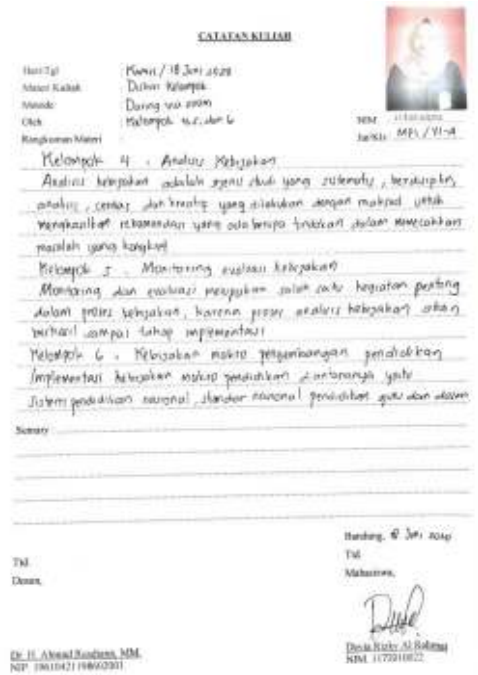 CATATAN KULIAH
Hari/Tgl : Kamis / 18 Juni 2020
Materi Kuliah : Diskusi Kelompok
Metode : Daring via zoom
Oleh : Kelompok 4, 5, dan 6
NIM
Jur/Kls : MPI / VI-A
Rangkuman Materi :
Kelompok 4 : Analisis Kebijakan
Analisis kebijakan adalah studi yang sistematis, berdisiplin,
analitis, cerdas, dan kreatif yang dilakukan dengan maksud untuk
menghasilkan rekomendasi yang berupa tindakan dalam memecahkan
masalah yang kongkrit
Kelompok 5 : Monitoring evaluasi kebijakan
Monitoring dan evaluasi merupakan salah satu kegiatan penting
dalam proses kebijakan, karena proses analisis kebijakan akan
berhasil sampai tahap implementasi
Kelompok 6 : Kebijakan makro pengembangan pendidikan
Implementasi kebijakan makro pendidikan diantaranya yaitu
Sistem pendidikan nasional, standar nasional pendidikan, guru dan dosen
Bandung, 18 Juni 2020
Ttd
Ttd
Dosen,
Mahasiswa,
Devia Rizky Al Rahma
Dr. H. Ahmad MM.
NIM.
NIP.